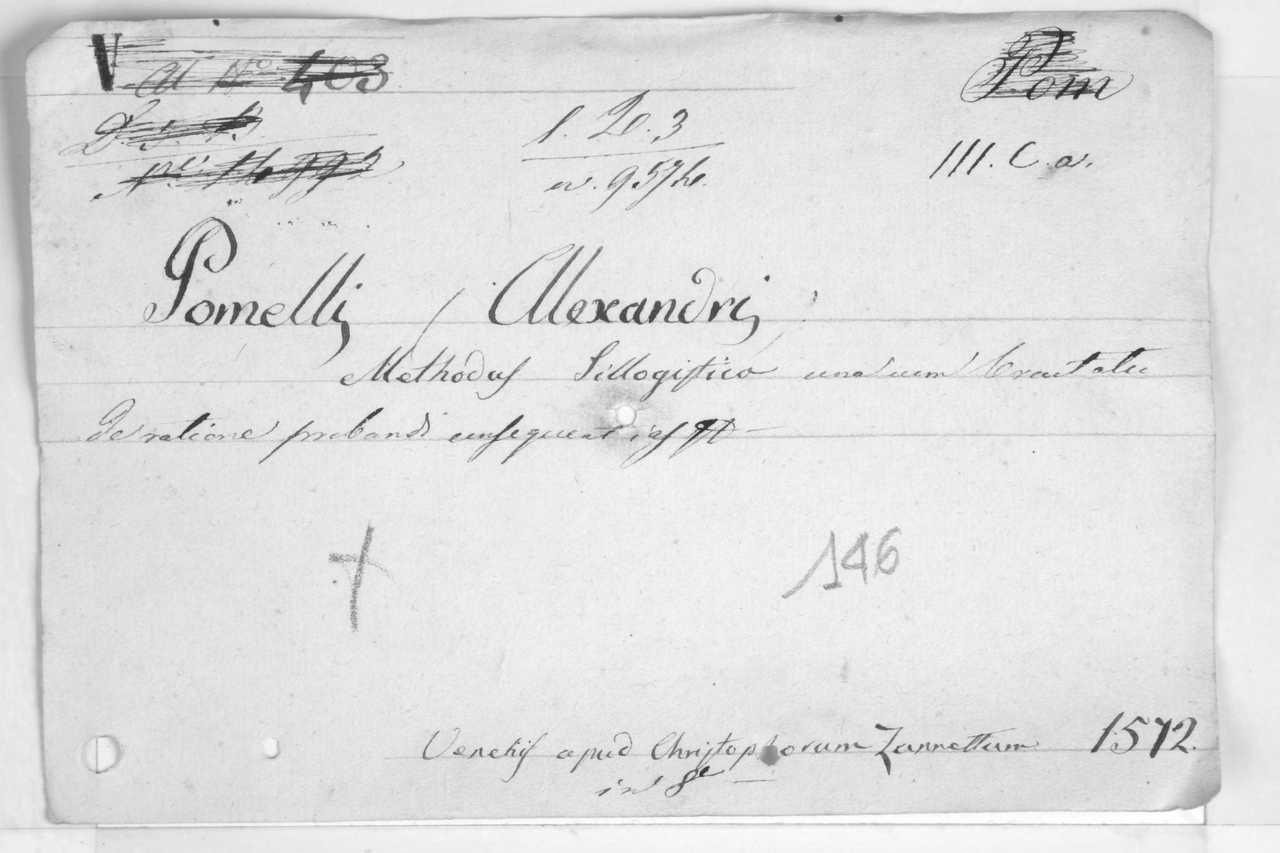 V
Ad No 403
Pom
III. C. a.
Pomelli, Alexandri,
Methodus Sillogistica una cum tractatu
de ratione probandi consequentias
+ 146
Venetiis apud Christophorum Zannettum 1572.
in 8e